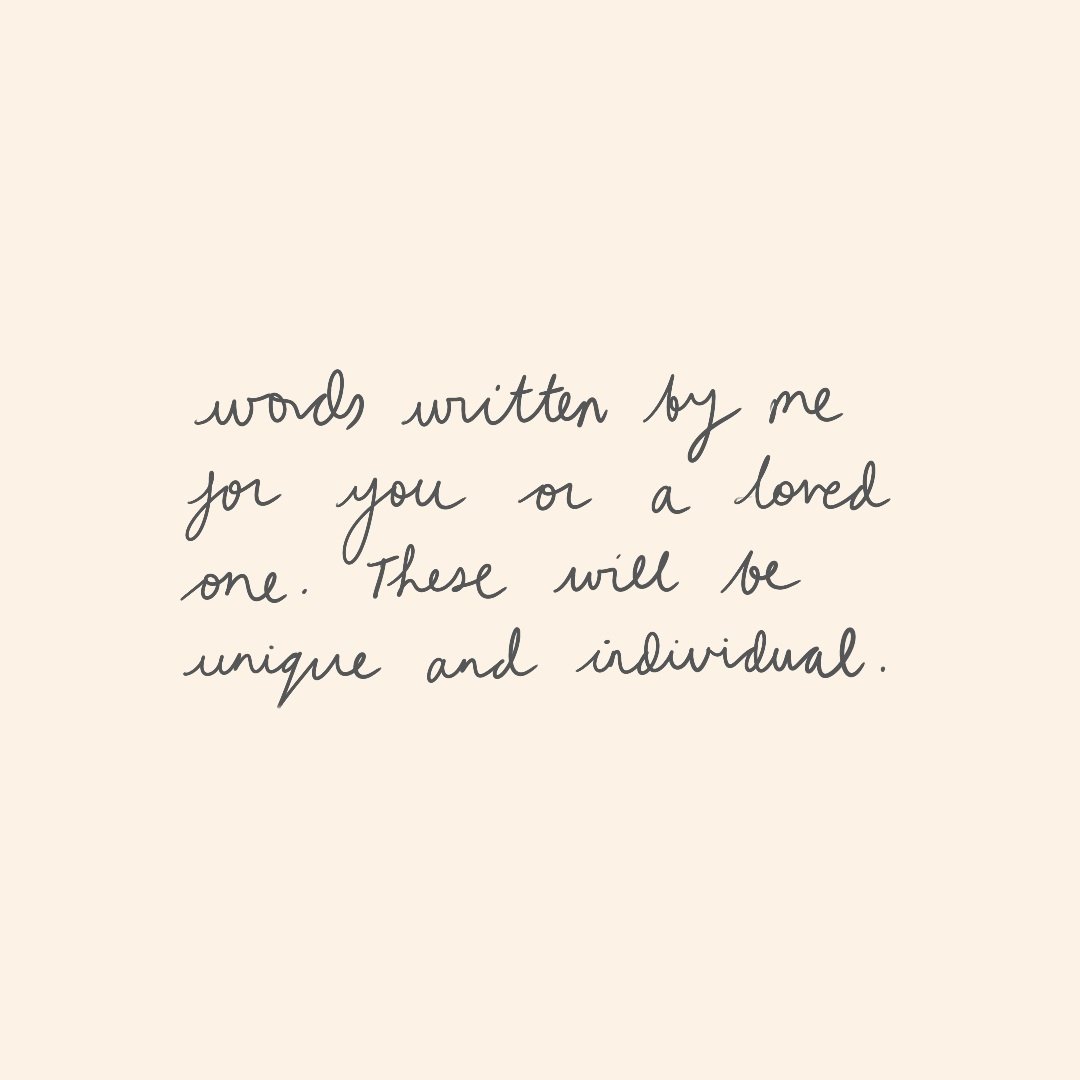 words written by me
for you or a loved
one. These will be
unique and individual.